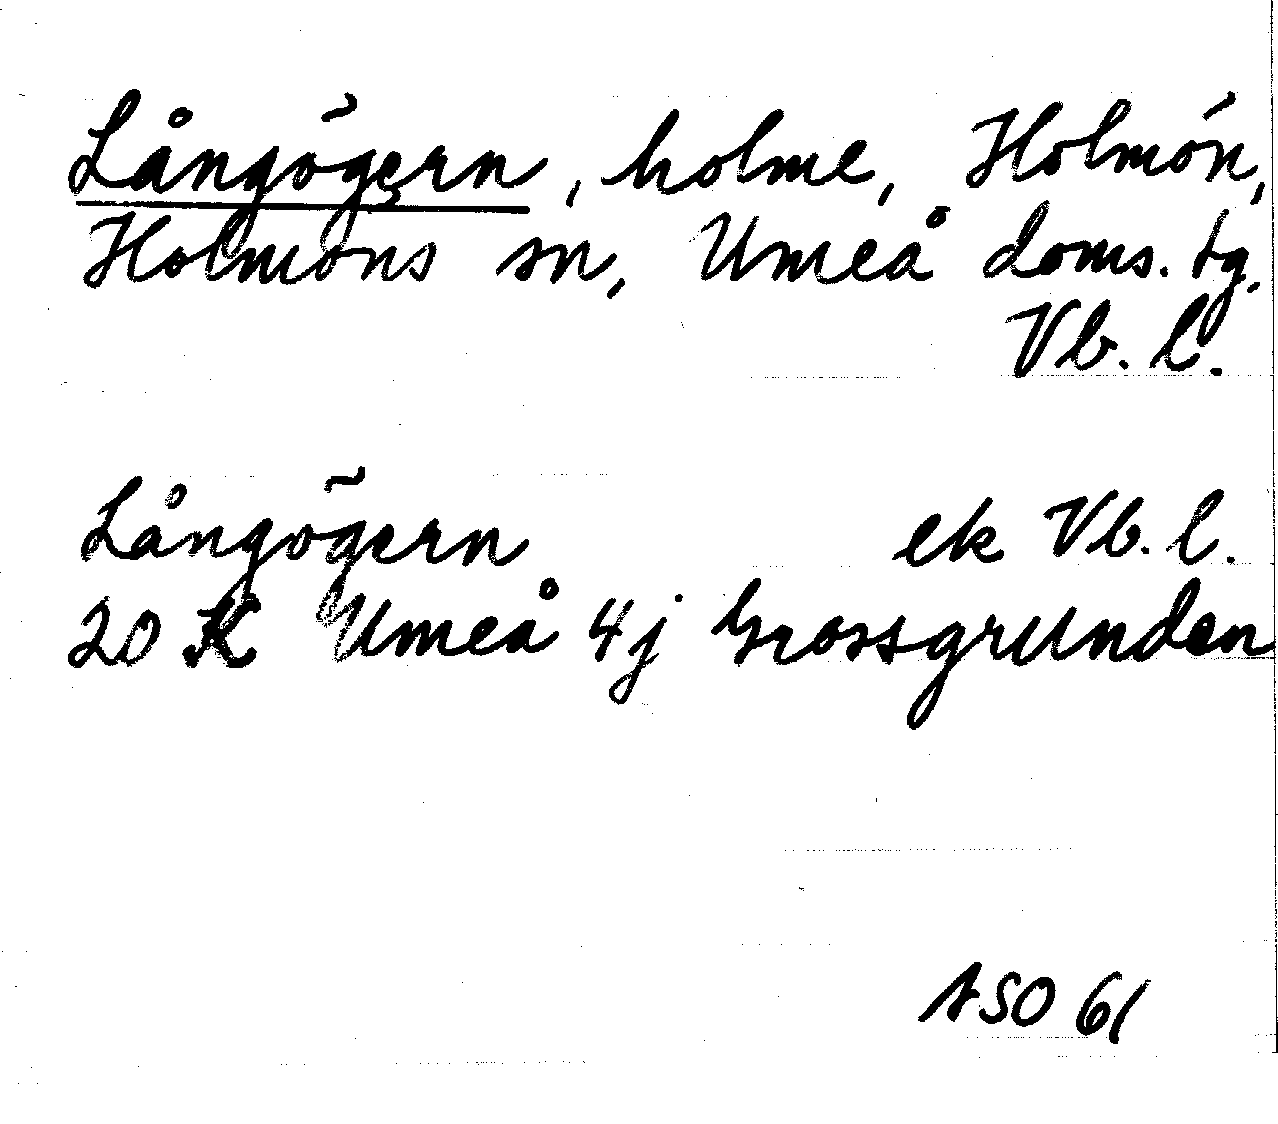 Långögern, holme, Holmön,
Holmöns sn, Umeå doms. tg.
Vb. l.
Långögern ek Vb. l.
20 K Umeå 4j Grossgrunden
ASO 61